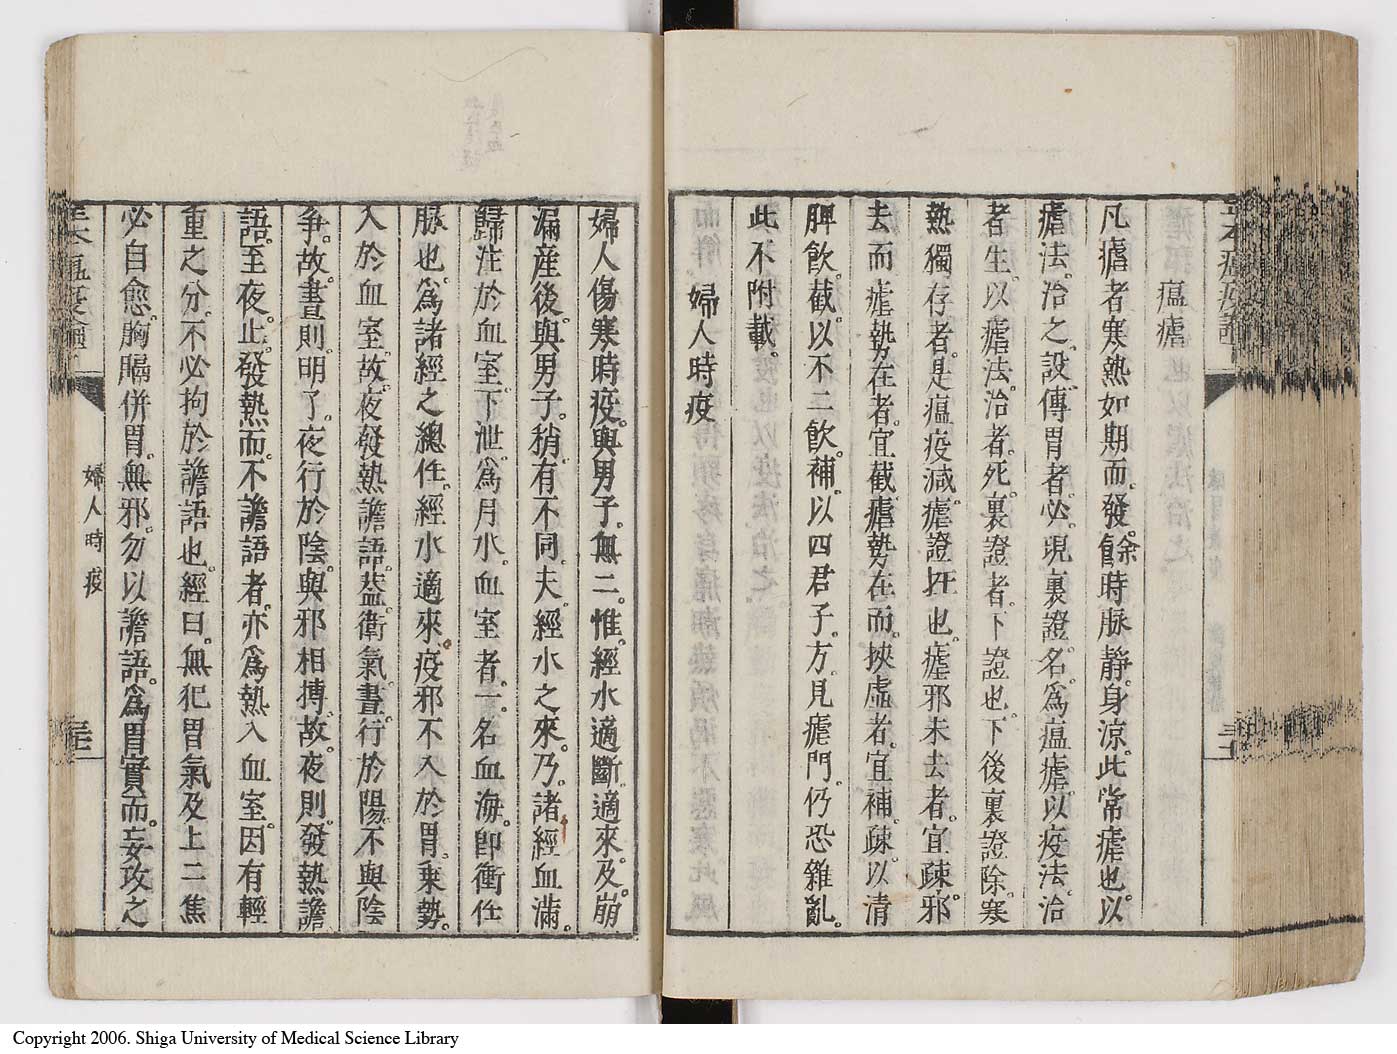 瘟瘧
凡瘧者寒熱如期而發餘時脉静身涼此常瘧也以
瘧法治之設傳胃者必現裏證名爲瘟瘧以疫法治
者生以瘧法治者死裏證者下證也下後裏證除寒
熱獨存者是瘟疫減瘧證在也瘧邪未去者宜疎邪
去而瘧勢在者宜截瘧勢在而挾虚者宜補疎以清
脾飲截以不二飲補以四君子方見瘧門仍恐雜亂
此不附載
婦人時疫
婦人傷寒時疫與男子無二惟經水適斷適來及崩
漏産後與男子稍有不同夫經水之來乃諸經血滿
歸注於血室下泄爲月水血室者一名血海卽衝任
脉也爲諸經之總任經水適來疫邪不入於胃乗勢
入於血室故夜發熱譫語葢衛氣晝行於陽不與陰
争故晝則明了夜行於陰與邪相搏故夜則發熱譫
語至夜止發熱而不譫語者亦爲熱入血室因有輕
重之分不必拘於譫語也經曰無犯胃氣及上二焦
必自愈胸膈併胃無邪勿以譫語爲胃實而妄攻之
婦人時疫
Copyright 2006. Shiga University of Medical Science Library